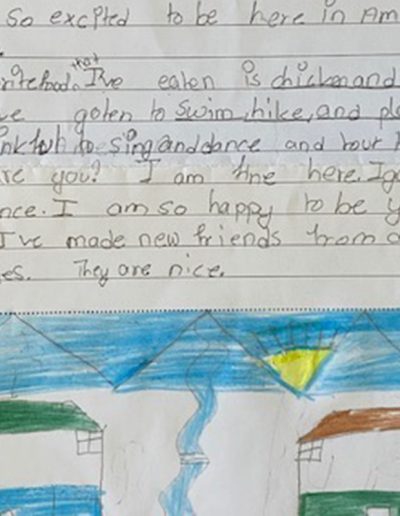 so excited to be here in Am
ritefood. that I've eaten is chicken and
ve goten to swim, hike, and pl
to sing and dance and
re you? I am fine here. I g
nce. I am so happy to be y
I've made new friends from
es. They are nice.